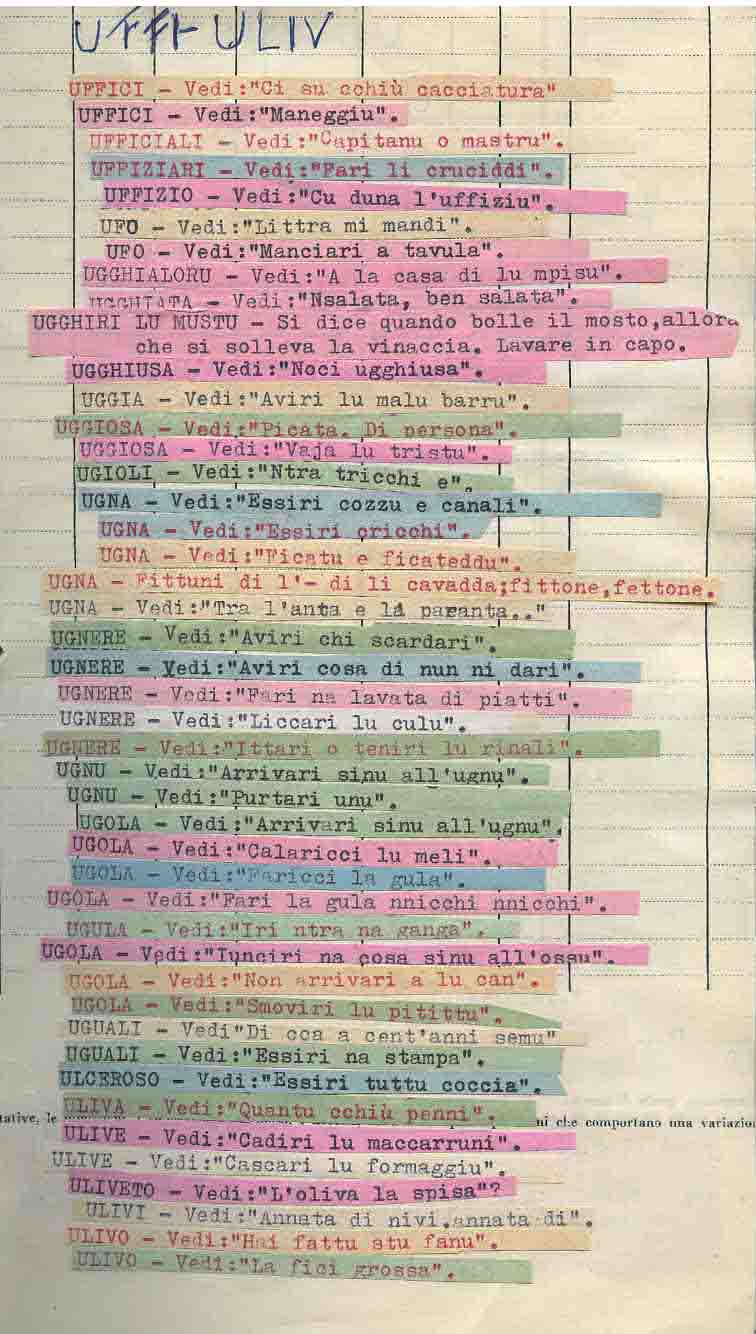 UFFI-ULIV
UFFICI - Vedi:"Ci su cchiù cacciatura"
UFFICI - Vedi:"Maneggiu".
UFFICIALI - Vedi:"Capitanu o mastru".
UFFIZIARI - Vedi:"Fari li cruciddi".
UFFIZIO - Vedi:"Cu duna l'uffiziu".
UFO - Vedi:"Littra mi mandi".
UFO - Vedi:"Manciari a tavula".
UGGHIALORU - Vedi:"A la casa di lu mpisu".
UGGHIATA - Vedi:"Nsalata, ben salata".
UGGHIRI LU MUSTU - Si dice quando bolle il mosto,allora
che si solleva la vinaccia. Lavare in capo.
UGGHIUSA - Vedi:"Noci ugghiusa".
UGGIA - Vedi:"Aviri lu malu barru".
UGGIOSA - Vedi:"Picata. Di persona".
UGGIOSA - Vedi:"Vaja lu tristu".
UGIOLI - Vedi:"Ntra tricchi e".
UGNA - Vedi:"Essiri cozzu e canali".
UGNA - Vedi:"Essiri cricchi".
UGNA - Vedi:"Ficatu e ficateddu".
UGNA - Fittuni di l'- di li cavadda;fittone,fettone.
UGNA - Vedi:"Tra l'anta e la paranta.."
UGNERE - Vedi:"Aviri chi scardari".
UGNERE - Vedi:"Aviri cosa di nun ni dari".
UGNERE - Vedi:"Fari na lavata di piatti".
UGNERE - Vedi:"Liccari lu culu".
UGNERE - Vedi:"Ittari o teniri lu rinali".
UGNU - Vedi:"Arrivari sinu all'ugnu".
UGNU - Vedi:"Purtari unu".
UGOLA - Vedi:"Arrivari sinu all'ugnu".
UGOLA - Vedi:"Calaricci lu meli".
UGOLA - Vedi:"Faricci la gula".
UGOLA - Vedi:"Fari la gula nnicchi nnicchi".
UGULA - Vedi:"Iri ntra na ganga".
UGOLA - Vedi:"Iunciri na cosa sinu all'ossu".
UGOLA - Vedi:"Non arrivari a lu can".
UGOLA - Vedi:"Smoviri lu pitittu".
UGUALI - Vedi"Di cca a cent'anni semu"
UGUALI - Vedi:"Essiri na stampa".
ULCEROSO - Vedi:"Essiri tuttu coccia".
ULIVA - Vedi:"Quantu cchiù penni".
tative, le ni che comportano una variazio
ULIVE - Vedi:"Cadiri lu maccarruni".
ULIVE - Vedi:"Cascari lu formaggiu".
ULIVETO - Vedi:"L'oliva la spisa"?
ULIVI - Vedi:"Annata di nivi,annata di".
ULIVO - Vedi:"Hai fattu stu fanu".
ULIVO - Vedi:"La fici grossa".